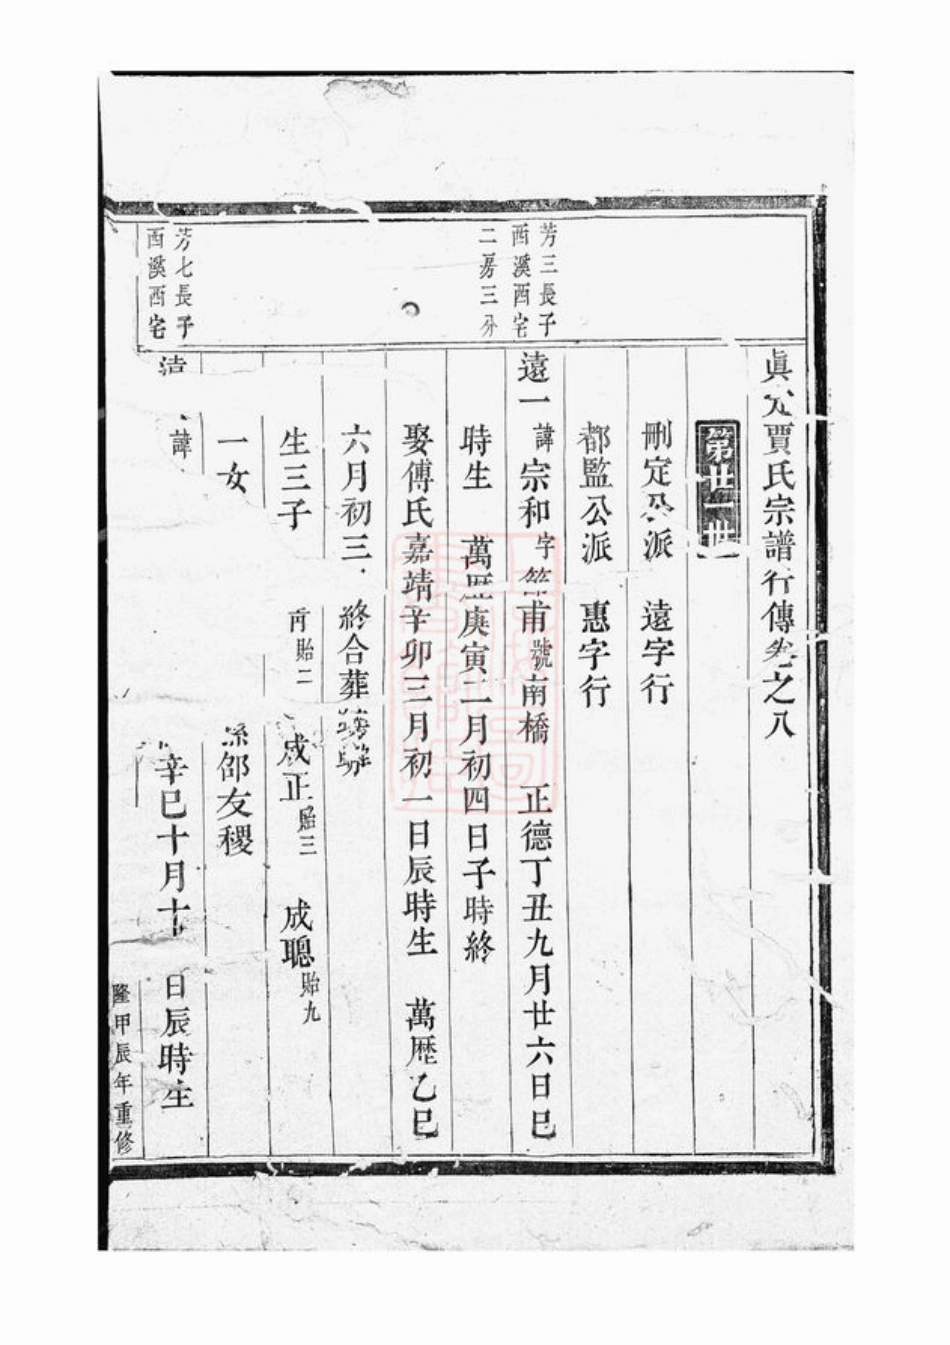 眞定賈氏宗譜行傳卷之八
第廿一世
刪定公派 遠字行
都監公派 惠字行
芳三長子
西溪西宅
二房三分
遠一 諱宗和 字 甫 號南橋 正德丁丑九月廿六日巳
時生 萬歷庚寅二月初四日子時終
娶傅氏嘉靖辛卯三月初一日辰時生 萬歷乙巳
六月初三 終合葬
生三子 貽二 成正貽三 成聰貽九
一女 邵友稷
芳七長子
西溪西宅
諱 辛巳十月十 日辰時生
隆甲辰年重修